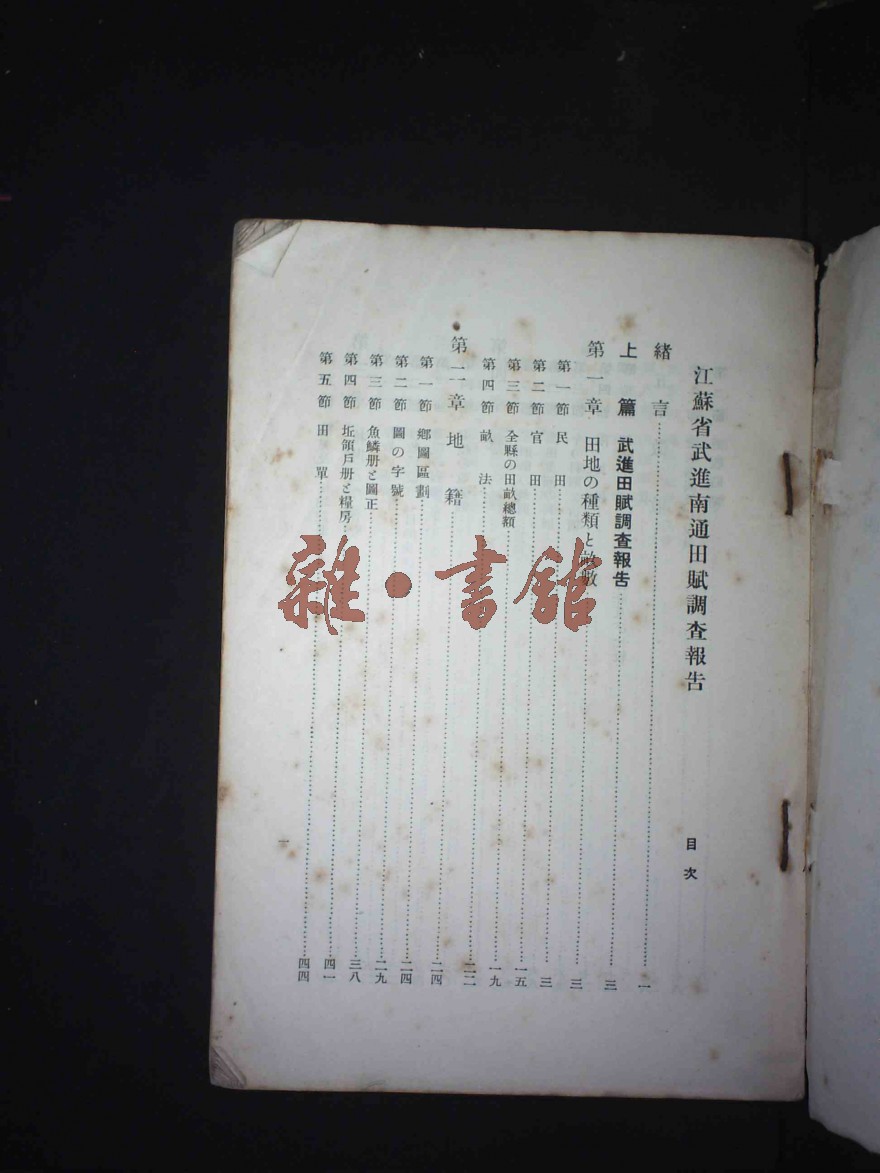 江蘇省武進南通田賦調查報告
目次
緒言……一
上篇 武進田賦調查報告……三
第一章 田地の種類と畝數……三
第一節 民田……三
第二節 官田……一五
第三節 全縣の田畝總額……一九
第四節 畝法……二二
第二章 地籍……二四
第一節 鄉圖區劃……二四
第二節 圖の字號……二九
第三節 魚鱗册と圖正……三八
第四節 坵領戶册と糧房……四一
第五節 田單……四四
一
雜·書館